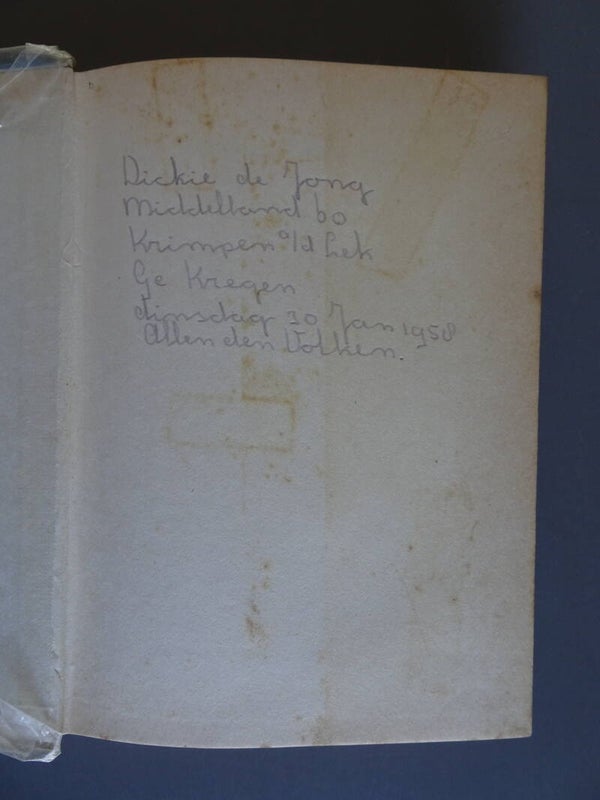 Dickie de Jong
Middelland 60
Krimpen a/d Lek
Ge Kregen
dinsdag 30 Jan 1958
Allen den Volken.